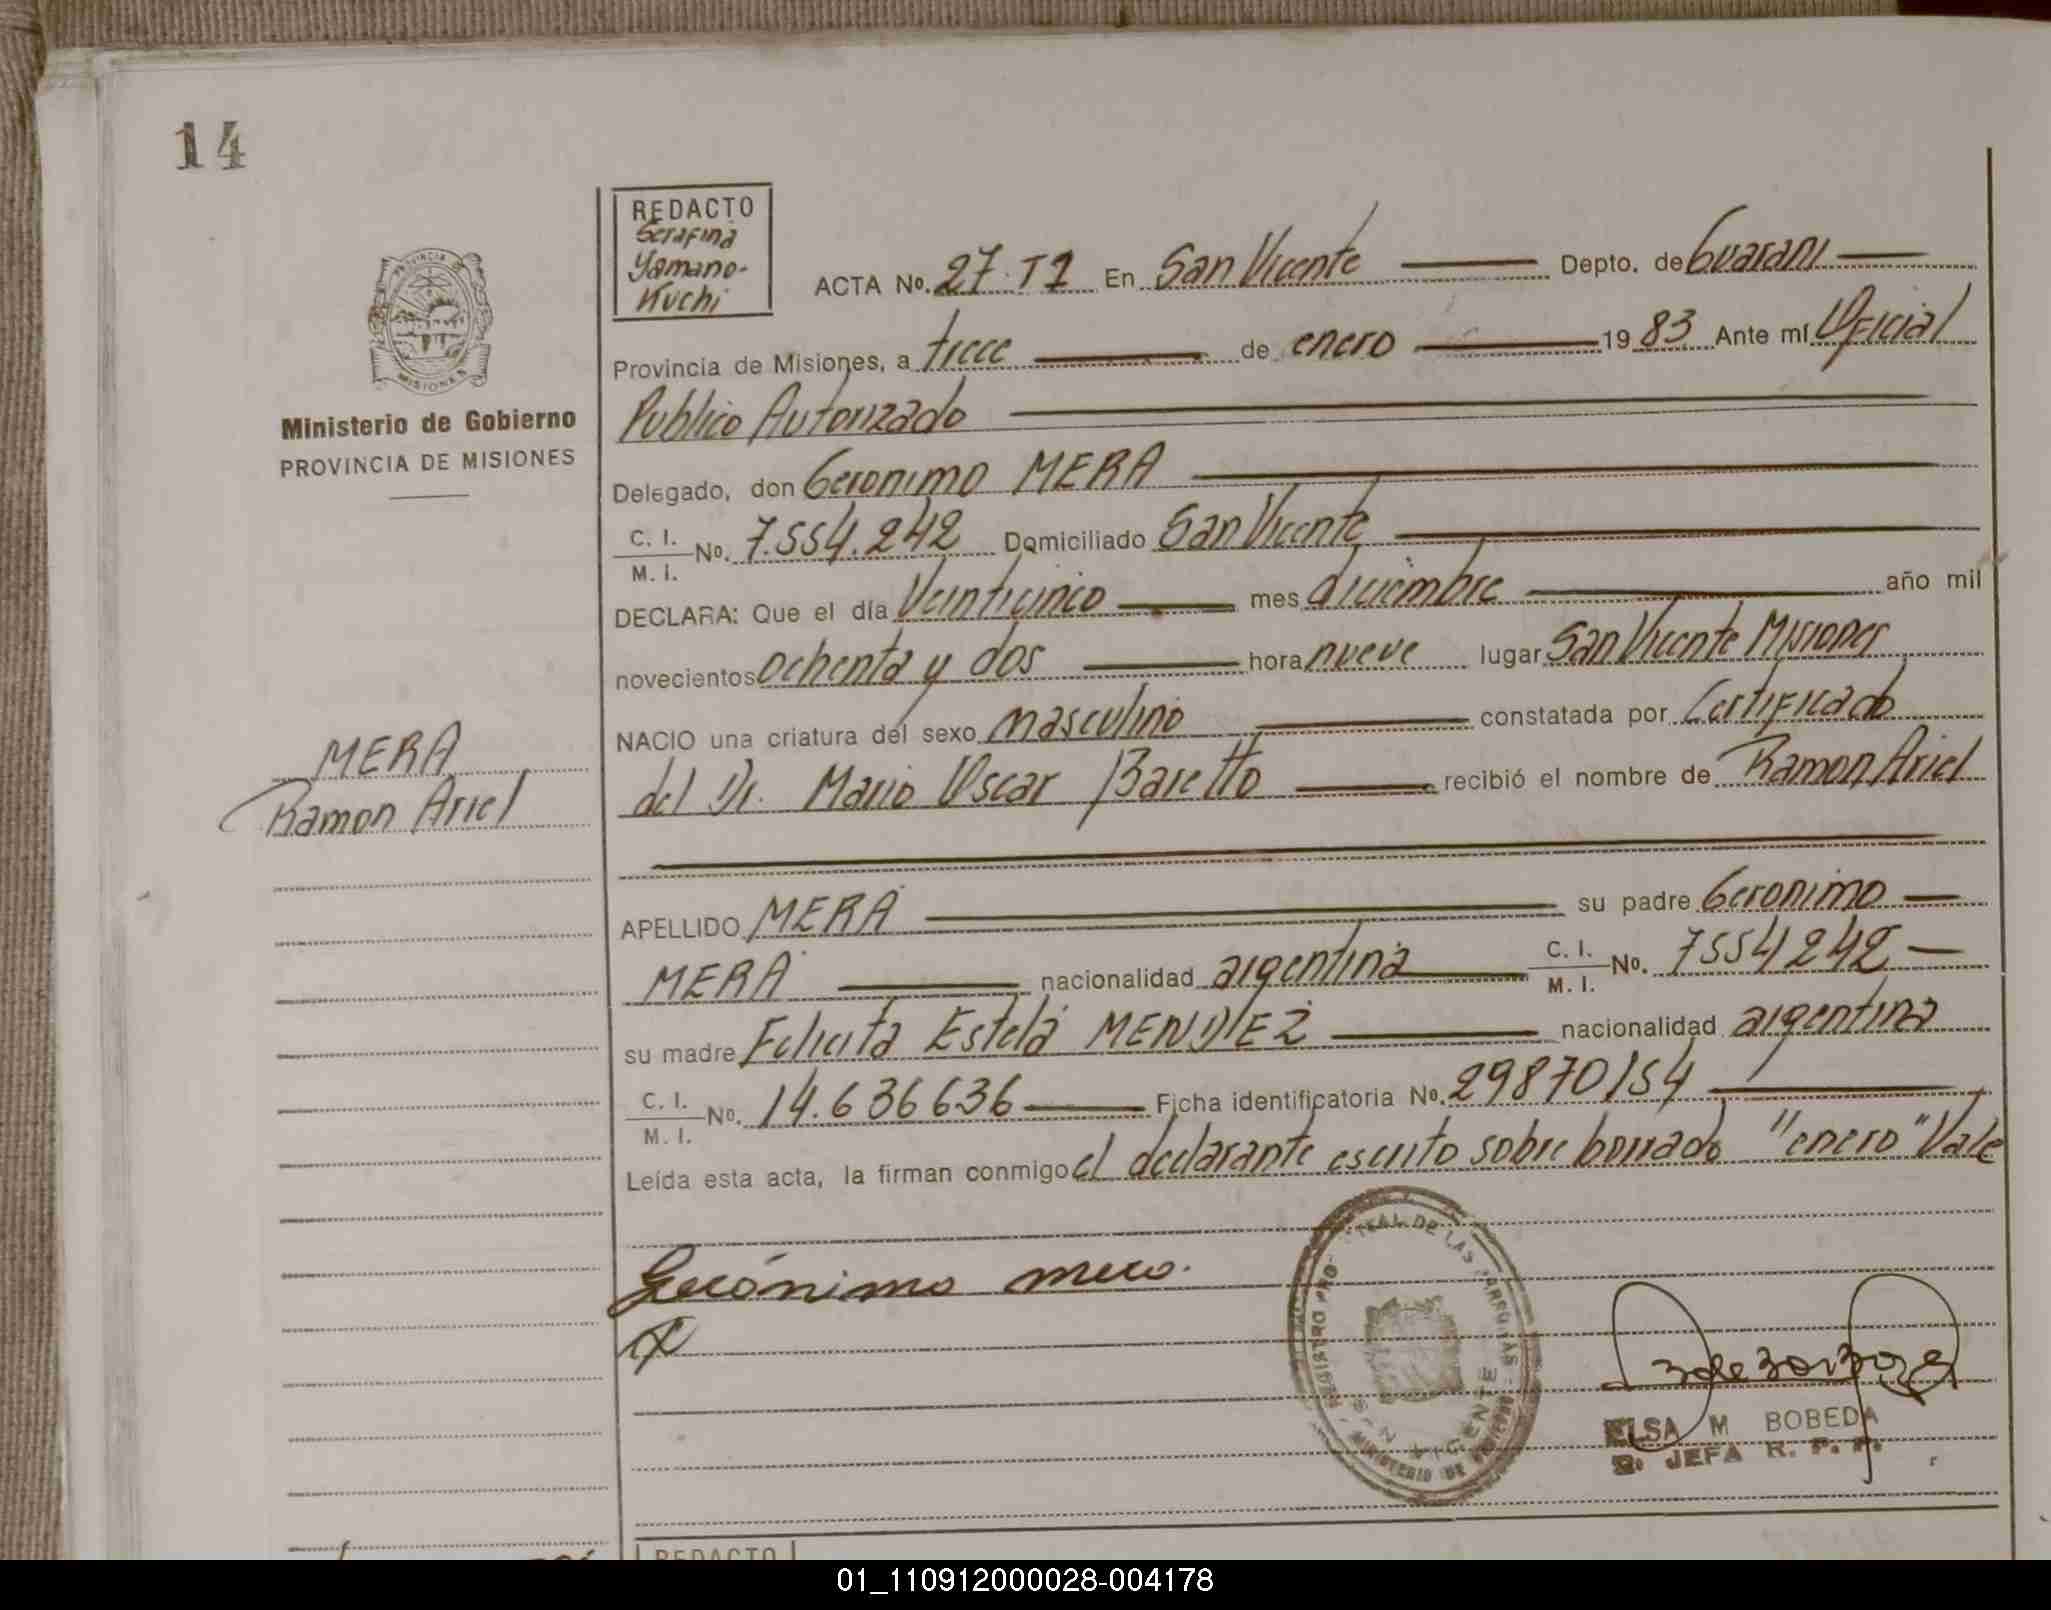 14
REDACTO
Serafina
Yamano-
Kuchi
ACTA No. 27. T1 En San Vicente Depto. de Guarani
Provincia de Misiones, a trece de enero 1983 Ante mí Oficial
Publico Autorizado
Delegado, don Geronimo MERA
C. I.
M. I. No. 7.554.242 Domiciliado San Vicente
DECLARA: Que el día Veinticinco mes diciembre año mil
novecientos ochenta y dos hora nueve lugar San Vicente Misiones
NACIO una criatura del sexo masculino constatada por Certificado
del Dr. Mario Oscar Baretto recibió el nombre de Ramon Ariel
APELLIDO MERA su padre Geronimo
MERA nacionalidad argentina C. I.
M. I. No. 7554242
su madre Felicita Estela MENDEZ nacionalidad argentina
C. I.
M. I. No. 14.636636 Ficha identificatoria No. 29870154
Leída esta acta, la firman conmigo el declarante escrito sobre borrado "enero" Vale
Gerónimo mera.
PROVINCIA
MISIONES
Ministerio de Gobierno
PROVINCIA DE MISIONES
MERA
Ramon Ariel
REGISTRO DE LAS
VICENTE
MINISTERIO DE
ELSA M BOBEDA
JEFA R. P. P.
REDACTO
01_110912000028-004178